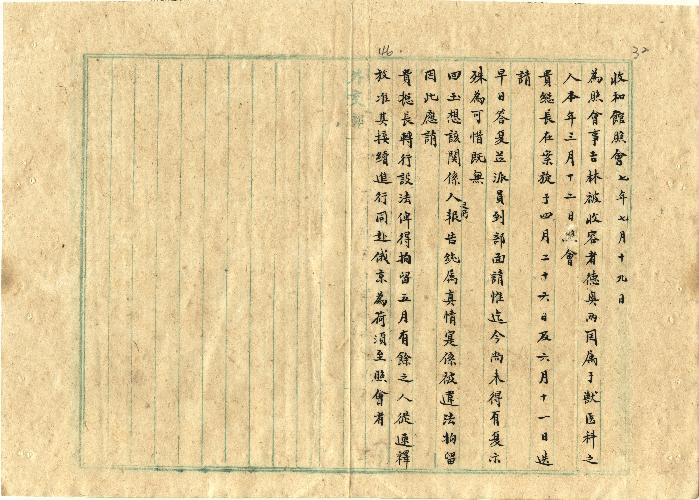 32
46
收和館照會 七年七月十九日
為照會事吉林被收容者德奧兩国屬于獸医科之
人本年三月十二日照會
貴總長在案旋于四月二十六日及六月十一日迭
請
早日答复並派員到部面請惟迄今尚未得有复示
殊為可惜既無
回玉想該関係人之所報告純屬真情寔係被違法拘留
因此應請
貴總長轉行設法俾得拘留五月有餘之人從速釋
放准其接續進行同赴俄京為荷須至照會者
外交部